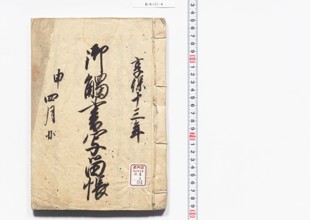 享保十三年
御觸書写留帳
申四月ゟ